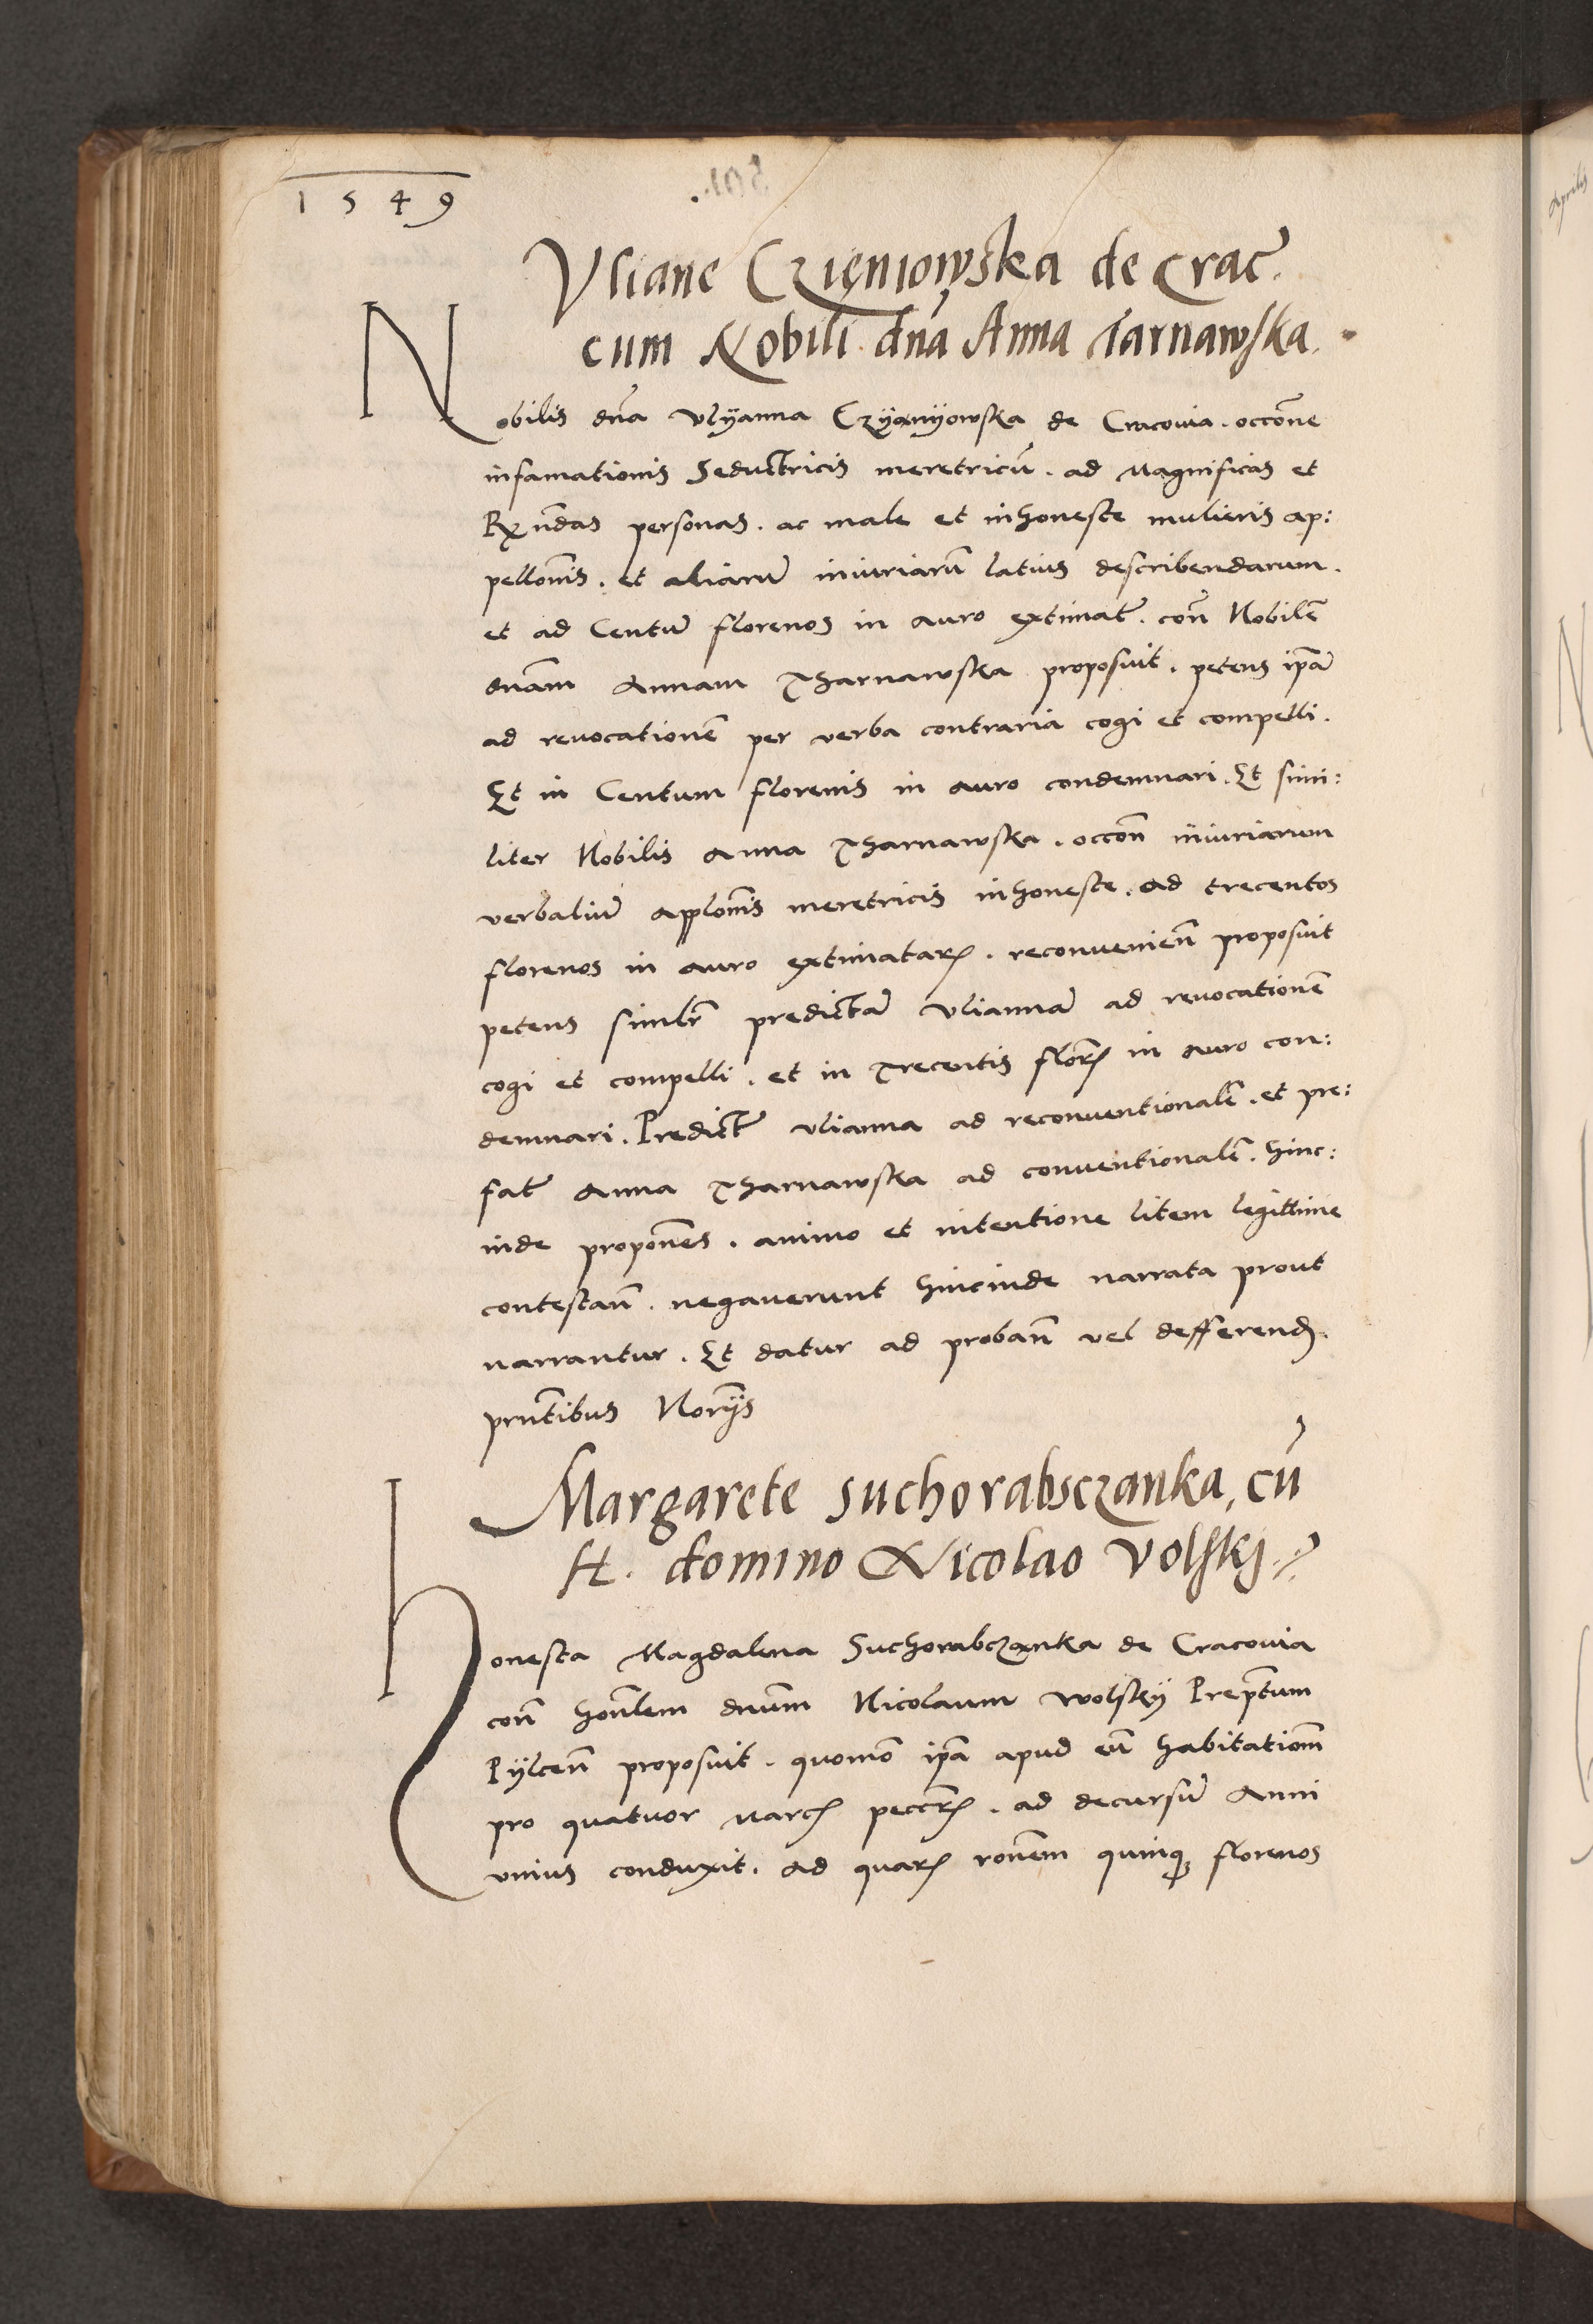 1549
Vliane Czięniowska de Crac̃.
cum Nobili dña Anna Tarnawska.
Nobilis dña Vlÿanna Czÿąnÿowska de Cracouia. occõne
infamationis Seductricis meretricũ. ad Magnificas et
Rx̃ndas personas. ac male et inhoneste mulieris ap:
pellonĩs. et aliarũ iniuriarũ latius describendarum.
et ad Centũ florenos in auro extimat̃. con̄ Nobilẽ
dnãm Annam Tharnawska proposuit. petens ip̃ã
ad reuocationẽ per verba contraria cogi et compelli.
Et in Centum florenis in auro condemnari. Et simi:
liter Nobilis Anna Tharnawska. occon̄ iniuriarum
verbaliũ applonĩs meretricis inhoneste. ad trecentos
florenos in auro extimatarꝝ. reconuenien̄ proposuit
petens similr̃ predictã Vliannã ad reuocationẽ
cogi et compelli. et in Trecentis florꝝ in auro con:
demnari. Predict̃ Vlianna ad reconuentionalẽ. et pre:
fat̃ Anna Tharnawska ad conuentionalẽ. hinc:
inde proponẽs. animo et intentione litem legittime
contestan̄. negauerunt hincinde narrata prout
narrantur. Et datur ad proban̄ vel defferend̃.
prñtibus Norÿs
Margarete Suchorabsczanka, cũ
H. domino Nicolao Volskj
Honesta Magdalena Suchorabcząnka de Cracouia
con̄ hon̄lem dnũm Nicolaum Wolskÿ Prep̃tum
Pÿlcen̄ proposuit. quomõ ip̃a apud eũ habitationẽ
pro quatuor marcꝭ peccr̃ꝭ. ad decursũ Anni
vnius conduxit. ad quarꝝ ronẽm quinqꝫ florenos